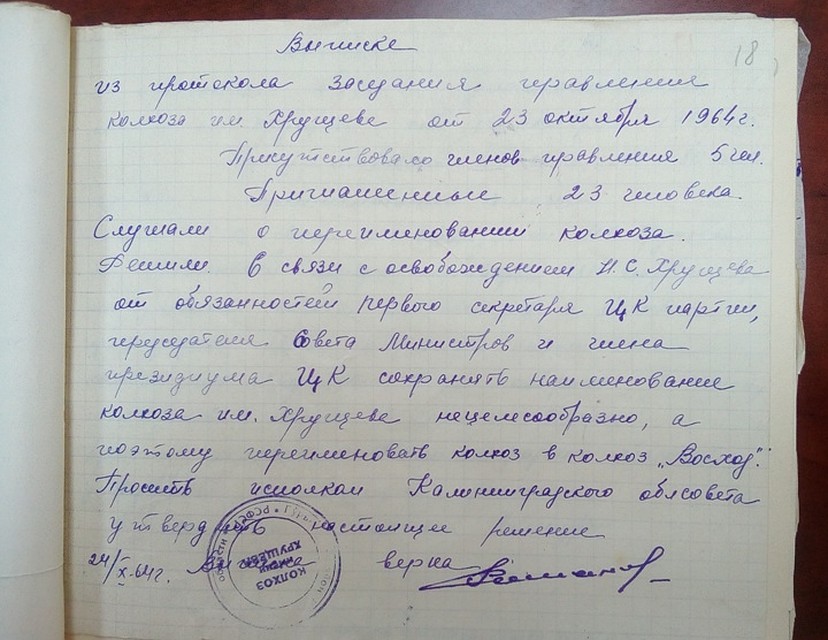 Выписка
18
из протокола заседания правления
колхоза им. Хрущева от 23 октября 1964г.
Присутствовало членов правления 5 чел.
Приглашенные 23 человека.
Слушали о переименовании колхоза.
Решили. В связи с освобождением Н.С. Хрущева
от обязанностей первого секретаря ЦК партии,
председателя Совета Министров и члена
президиума ЦК сохранять наименование
колхоза им. Хрущева нецелесообразно, а
поэтому переименовать колхоз в колхоз „Восход".
Просить исполком Калининградского облсовета
утвердить настоящее решение
24/X-64г. Выписка верна
КОЛХОЗ
ИМЕНИ
ХРУЩЕВА
РСФСР